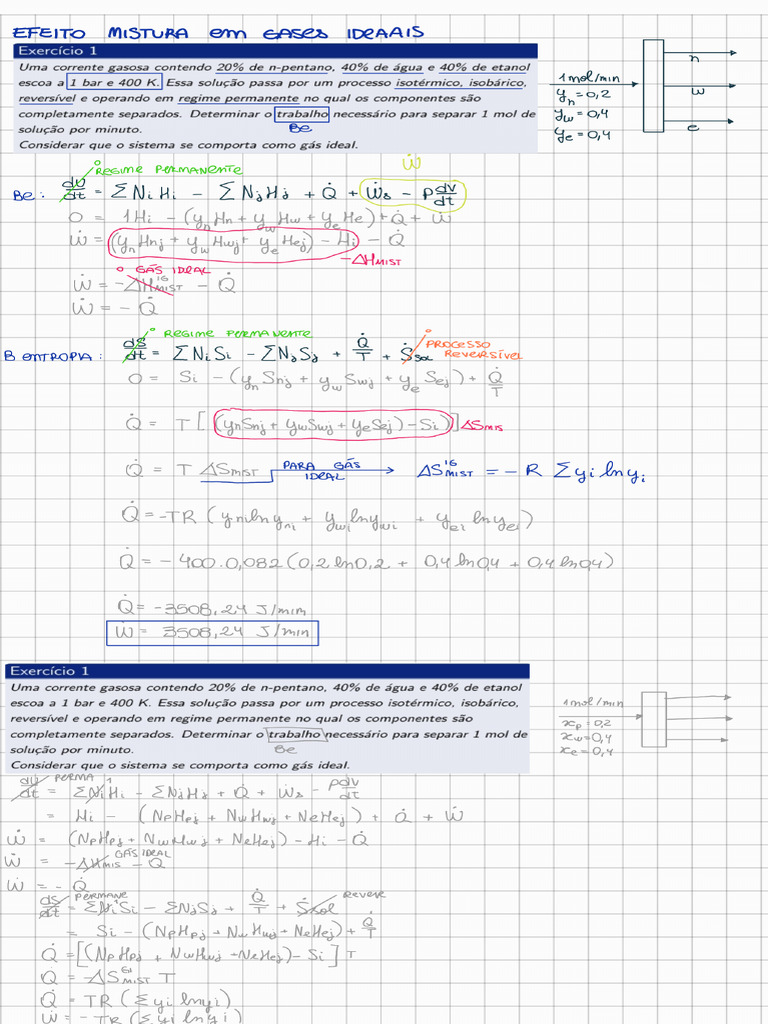 EFEITO MISTURA em GASES IDEAIS
Exercício 1
Uma corrente gasosa contendo 20% de n-pentano, 40% de água e 40% de etanol
escoa a 1 bar e 400 K. Essa solução passa por um processo isotérmico, isobárico,
reversível e operando em regime permanente no qual os componentes são
completamente separados. Determinar o trabalho necessário para separar 1 mol de
solução por minuto.
Be
Considerar que o sistema se comporta como gás ideal.
1mol/min
yn = 0,2
yw = 0,4
ye = 0,4
n
w
e
0 REGIME PERMANENTE
Ẇ
Be: dU/dt = ΣNiHi − ΣNjHj + Q̇ + Ẇs − PdV/dt
0 = 1Hi − (ynHn + ywHw + yeHe) + Q̇ + Ẇ
Ẇ = (ynHnj + ywHwj + yeHej) − Hi − Q̇
−ΔHMIST
0 GÁS IDEAL
Ẇ = −ΔH^IG MIST − Q̇
Ẇ = − Q̇
0 REGIME PERMANENTE
0 PROCESSO REVERSÍVEL
B ENTROPIA: dS/dt = ΣNiSi − ΣNjSj + Q̇/T + Ṡsol
0 = Si − (ynSnj + ywSwj + yeSej) + Q̇/T
Q̇ = T[(ynSnj + ywSwj + yeSej) − Si)] ΔSmis
Q̇ = T ΔSmist PARA GÁS IDEAL → ΔS^IG MIST = − R Σyi ln yi
Q̇ = −TR (yni ln yni + ywi ln ywi + yei ln yei)
Q̇ = − 400.0,082 (0,2 ln0,2 + 0,4 ln0,4 + 0,4 ln0,4)
Q̇ = −3508,24 J/min
Ẇ = 3508,24 J/min
Exercício 1
Uma corrente gasosa contendo 20% de n-pentano, 40% de água e 40% de etanol
escoa a 1 bar e 400 K. Essa solução passa por um processo isotérmico, isobárico,
reversível e operando em regime permanente no qual os componentes são
completamente separados. Determinar o trabalho necessário para separar 1 mol de
solução por minuto.
Be
Considerar que o sistema se comporta como gás ideal.
1mol/min
xp = 0,2
xw = 0,4
xe = 0,4
PERMA 1
dU/dt = ΣNiHi − ΣNjHj + Q + Ẇs − PdV/dt
= Hi − (NpHpj + NwHwj + NeHej) + Q̇ + Ẇ
Ẇ = (NpHpj + NwHwj + NeHej) − Hi − Q̇
GÁS IDEAL
Ẇ = −ΔHMIS − Q
Ẇ = − Q̇
PERMANE
REVER
dS/dt = ΣNiSi − ΣNjSj + Q̇/T + Ṡsol
= Si − (NpHpj + NwHwj + NeHej) + Q̇/T
Q̇ = [(NpHpj + NwHwj + NeHej) − Si] T
Q = −ΔS^GI MIST T
Q̇ = TR (Σyi ln yi)
Ẇ = −TR (Σyi ln yi)